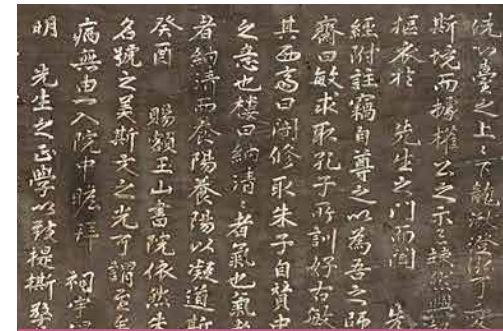 臺之上下龍澄潔可
斯境而據權公之示之然興
摳衣於 先生之門而聞 朱
經附註竊自尊之以為吾之師
齋曰敏求取孔子所訓好古敏
其西齋曰闇修取朱子自贊中
之意也樓曰納清清者氣也氣者
者納清而養陽養陽以凝道斯
癸酉 賜額玉山書院依然朱
名號之美斯文之光可謂至矣
病無由一入院中瞻拜 祠宇
明 先生之正學以提撕警